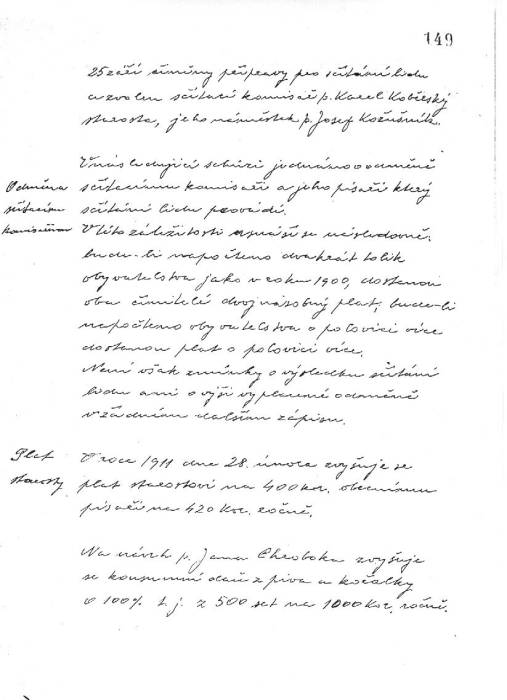 149
25 září činěny přípravy pro sčítání lidu
a zvolen sčítací komisař p. Karel Kobčeský
starosta, jeho náměstek p. Josef Kožušník.
V následující schůzi jednáno o odměně
Odměna
sčítacímu komisaři a jeho písaři který
sčítacím
sčítání lidu provádí.
komisařům
V této záležitosti usnáší se následovně:
bude-li napočteno dvakrát tolik
obyvatelstva jako v roku 1900, dostanou
oba činitelé dvojnásobný plat, bude-li
napočteno obyvatelstva o polovici více
dostanou plat o polovici více.
Není však zmínky o výsledku sčítání
lidu ani o výši vyplacené odměně
v žádném dalším zápisu.
Plat
V roce 1911 dne 28. února zvyšuje se
starosty
plat starostovi na 400 Kor. obecnímu
písaři na 420 Kor. ročně.
Na návrh p. Jana Chroboka zvyšuje
se konsumní daň z piva a kořalky
o 100% t. j. z 500 set na 1000 Kor. ročně.